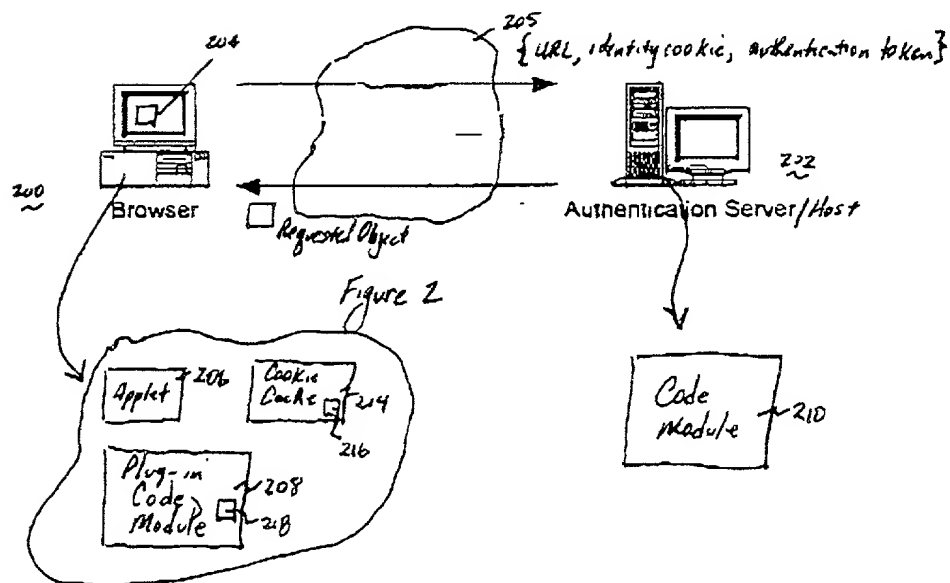 204
205
{URL, identity cookie, authentication token}
200
Browser
202
Authentication Server/Host
Requested Object
Figure 2
Applet
206
Cookie
Cache
214
216
Plug-in
Code
Module
208
218
Code
Module
210